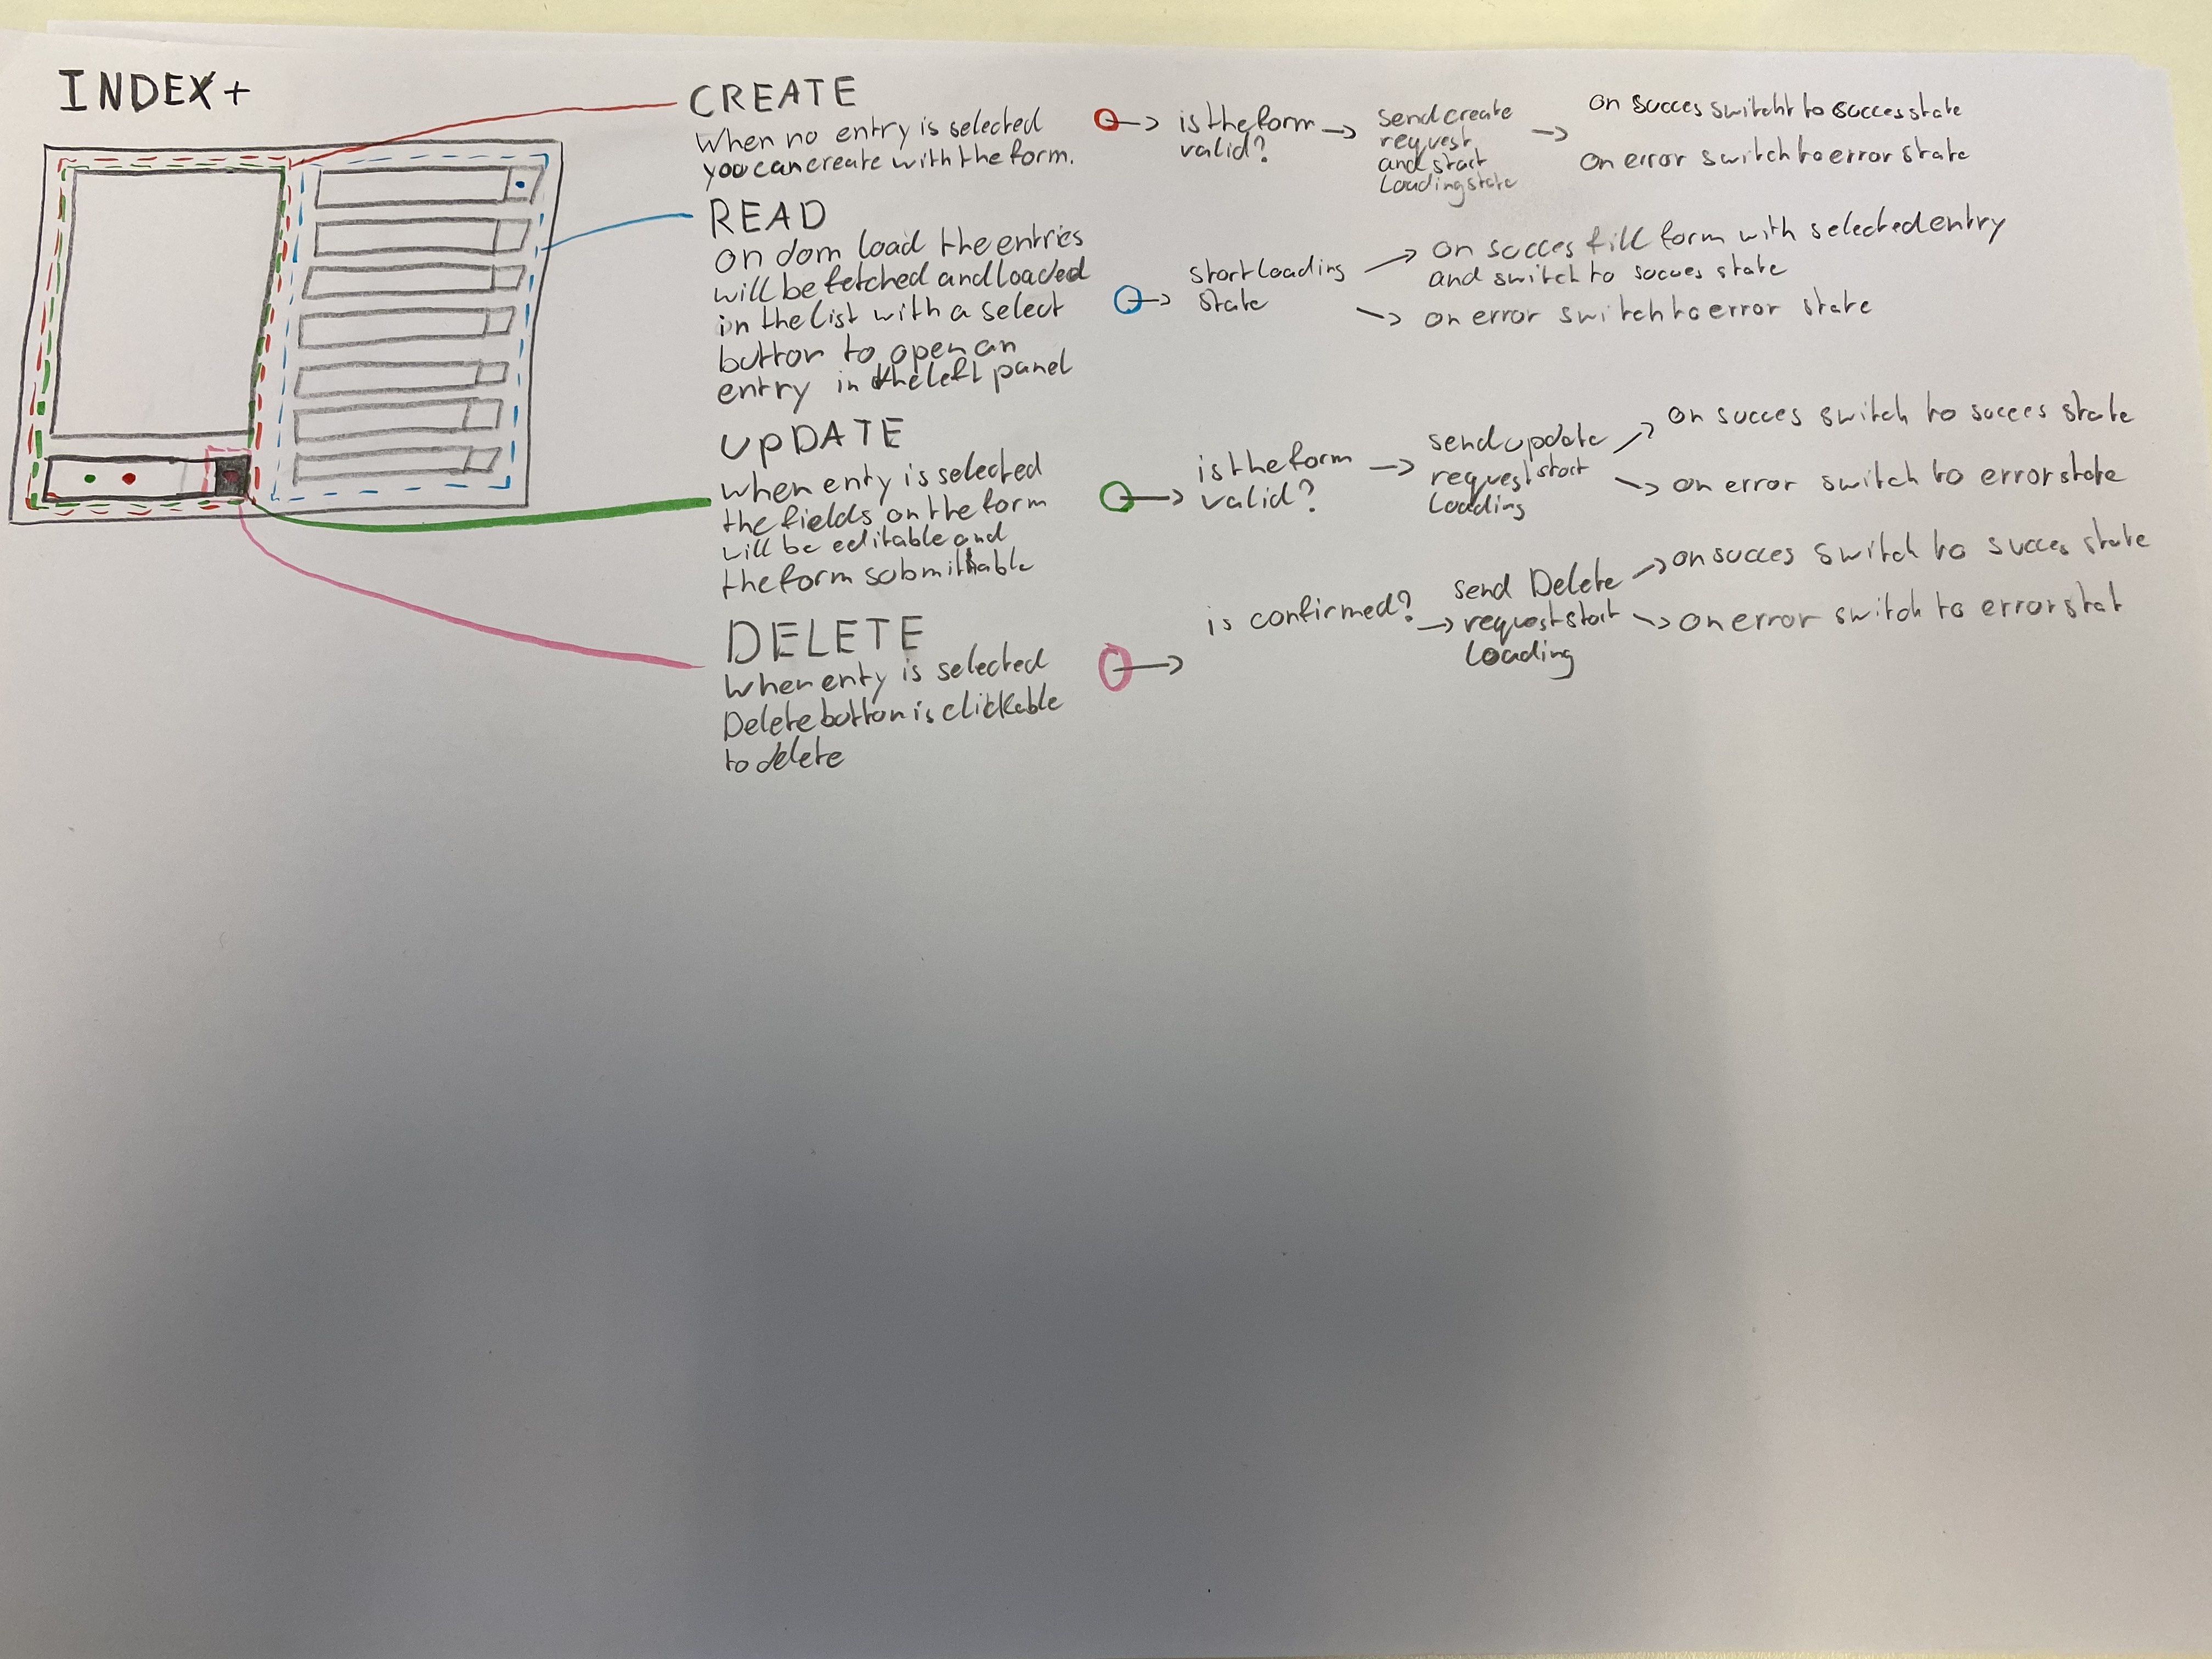 INDEX+
CREATE
When no entry is selected
you can create with the form.
is the form
valid?
send create
request
and start
Loading state
on succes switcht to succes state
on error switch to error state
READ
on dom load the entries
will be fetched and loaded
in the list with a select
button to open an
entry in the left panel
start loading
state
on succes fill form with selected entry
and switch to succes state
on error switch to error state
UPDATE
when enty is selected
the fields on the form
will be editable and
the form submittable
is the form
valid?
send update
request start
Loading
on succes switch to succes state
on error switch to error state
DELETE
When enty is selected
Delete button is clickable
to delete
is confirmed?
send Delete
request start
Loading
on succes switch to succes state
on error switch to error stat